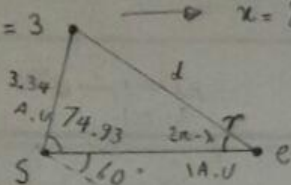 = 3 → x =
3.34
A.U
d
74.93
2π-λ
r
S
60°
1A.U
e